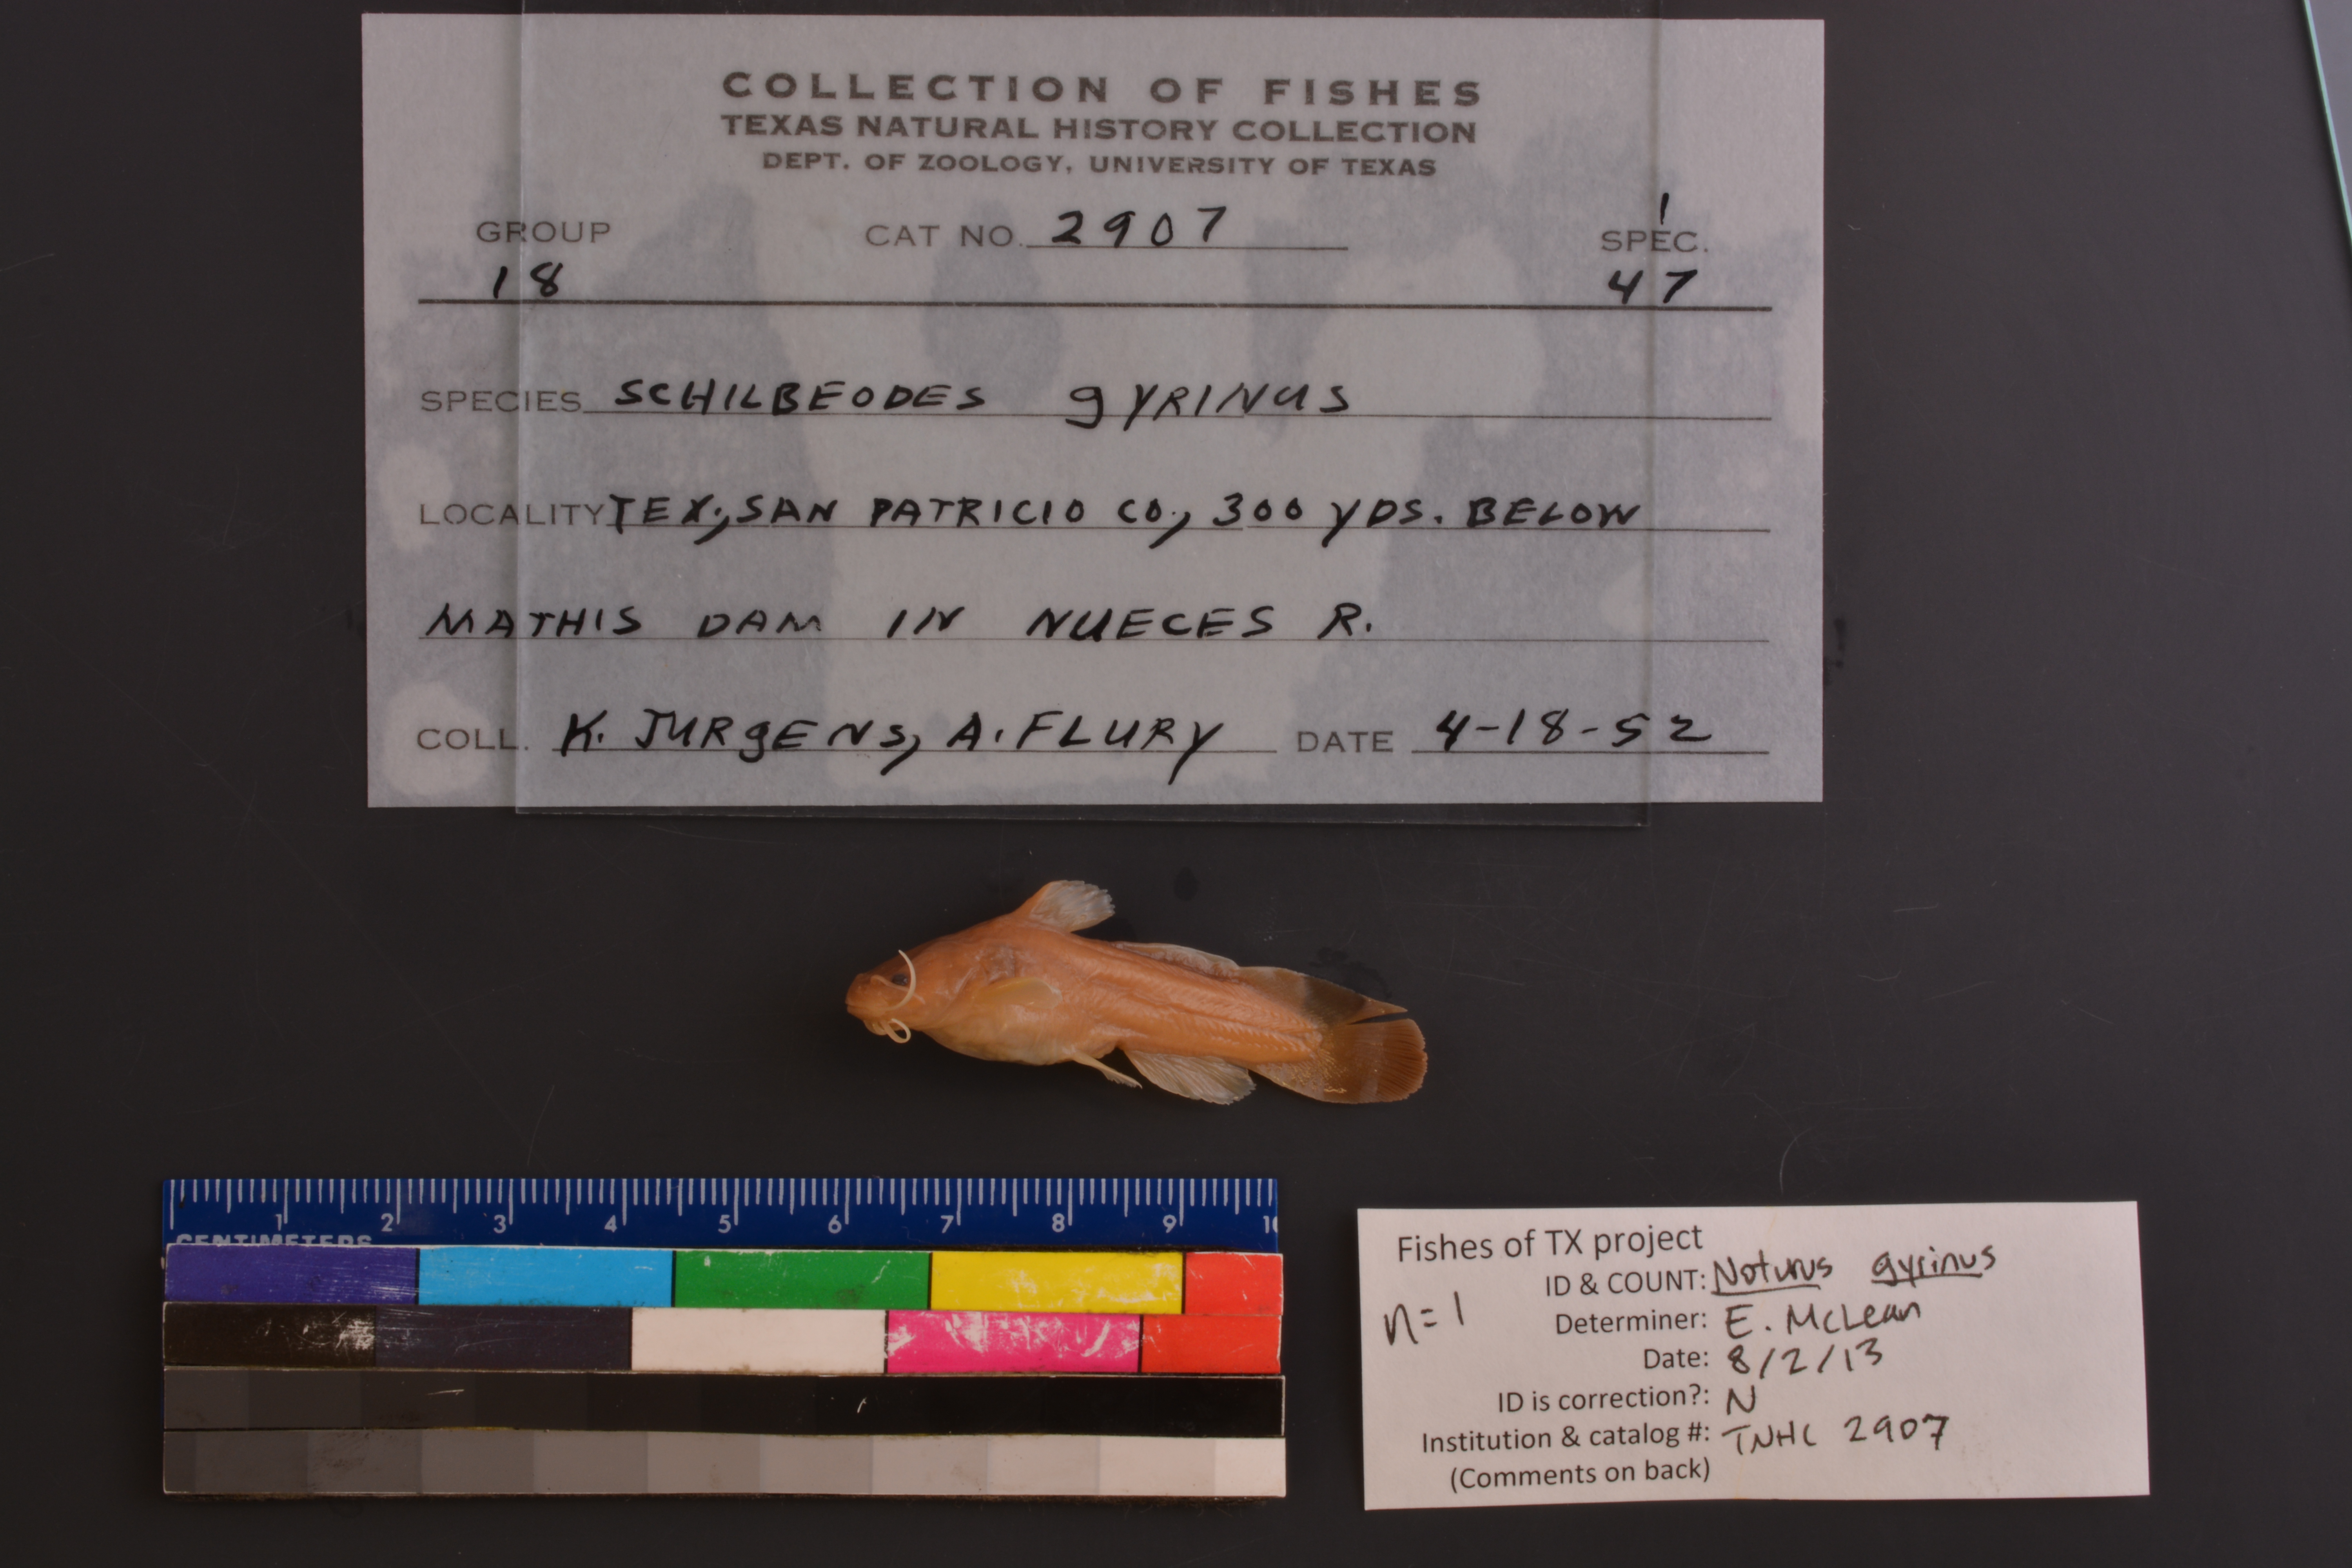 COLLECTION OF FISHES
TEXAS NATURAL HISTORY COLLECTION
DEPT. OF ZOOLOGY, UNIVERSITY OF TEXAS
1
GROUP CAT NO. 2907 SPEC.
18 47
SPECIES SCHILBEODES gyRINUS
LOCALITY TEX., SAN PATRICIO CO., 300 YDS. BELOW
MATHIS DAM IN NUECES R.
COLL. K. JURgENS, A. FLURY DATE 4-18-52
1 2 3 4 5 6 7 8 9 10
CENTIMETERS
Fishes of TX project
ID & COUNT: Noturus gyrinus
n=1
Determiner: E. McLean
Date: 8/2/13
ID is correction?: N
Institution & catalog #: TNHC 2907
(Comments on back)